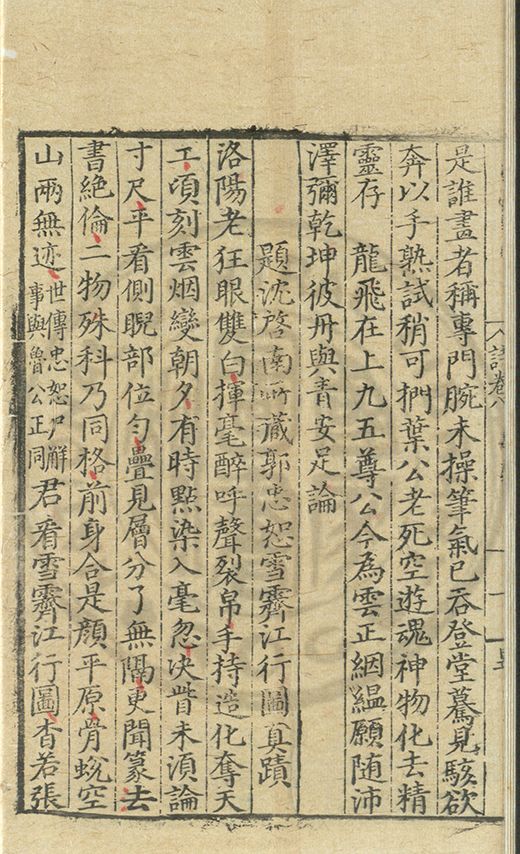 是誰畫者稱專門腕未操筆氣已吞登堂驀見駭欲
奔以手熟試稍可捫葉公老死空遊魂神物化去精
靈存 龍飛在上九五尊公今為雲正絪縕願随沛
澤彌乾坤彼丹與青安足論
題沈啓南所藏郭忠恕雪霽江行圖真蹟
洛陽老狂眼雙白揮毫醉呼聲裂帛手持造化奪天
工頃刻雲烟變朝夕有時點染入毫忽决眥未湏論
寸尺平看側睨部位勻疊見層分了無隔更聞篆去
書絶倫二物殊科乃同格前身合是顔平原骨蛻空
山兩無迹世傳忠恕尸解事與魯公正同君看雪霽江行圖杳若張
詩卷八